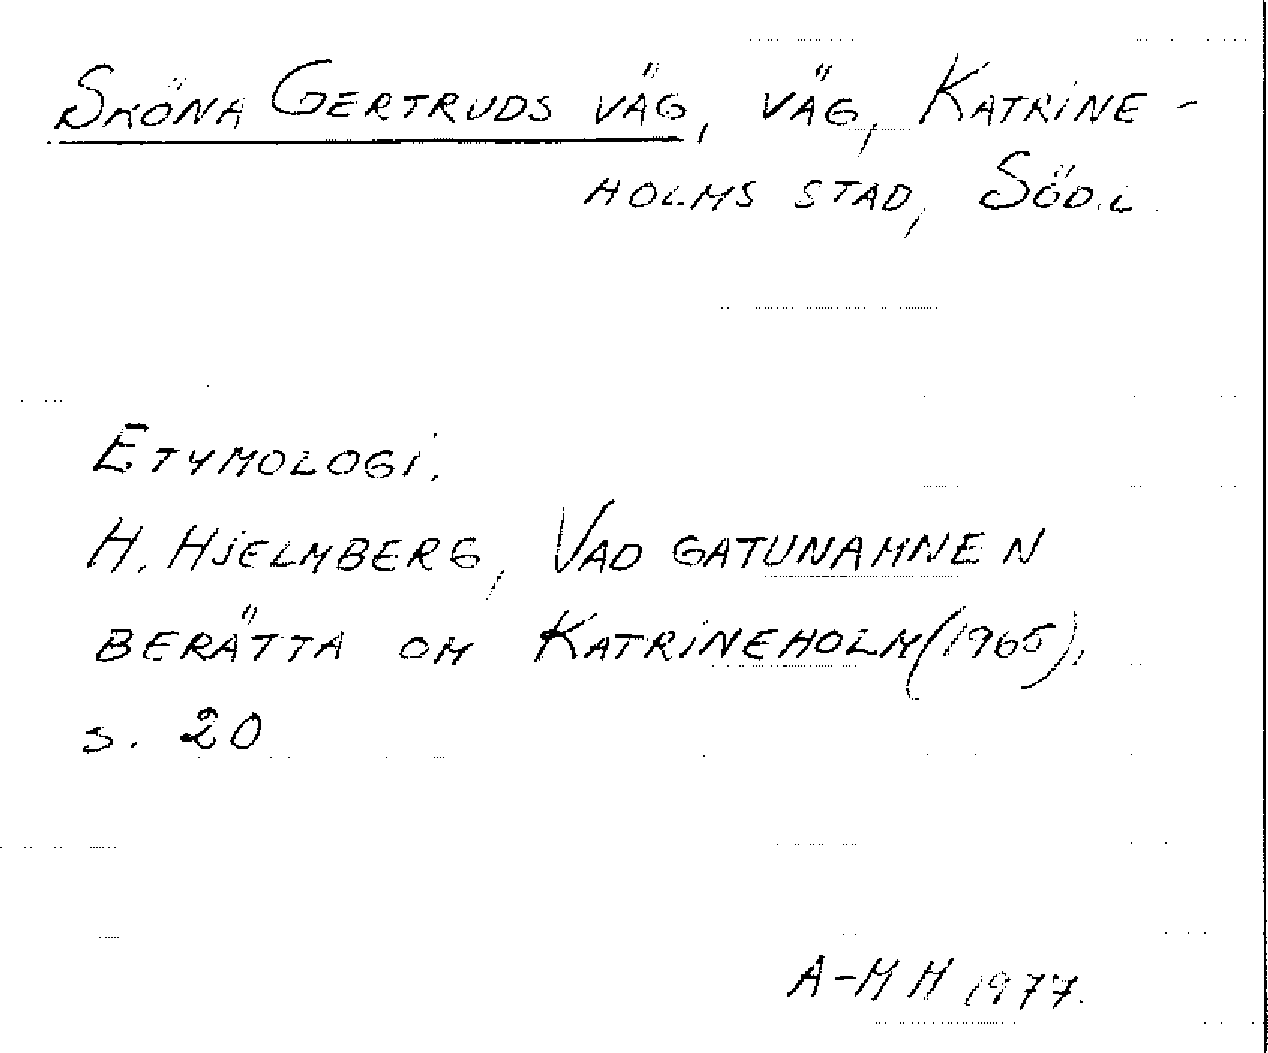 SKÖNA GERTRUDS VÄG, VÄG, KATRINE-
HOLMS STAD, SÖD.L.
ETYMOLOGI.
H. HJELMBERG, VAD GATUNAMNEN
BERÄTTA OM KATRINEHOLM (1965),
s. 20
A-MH 1977.